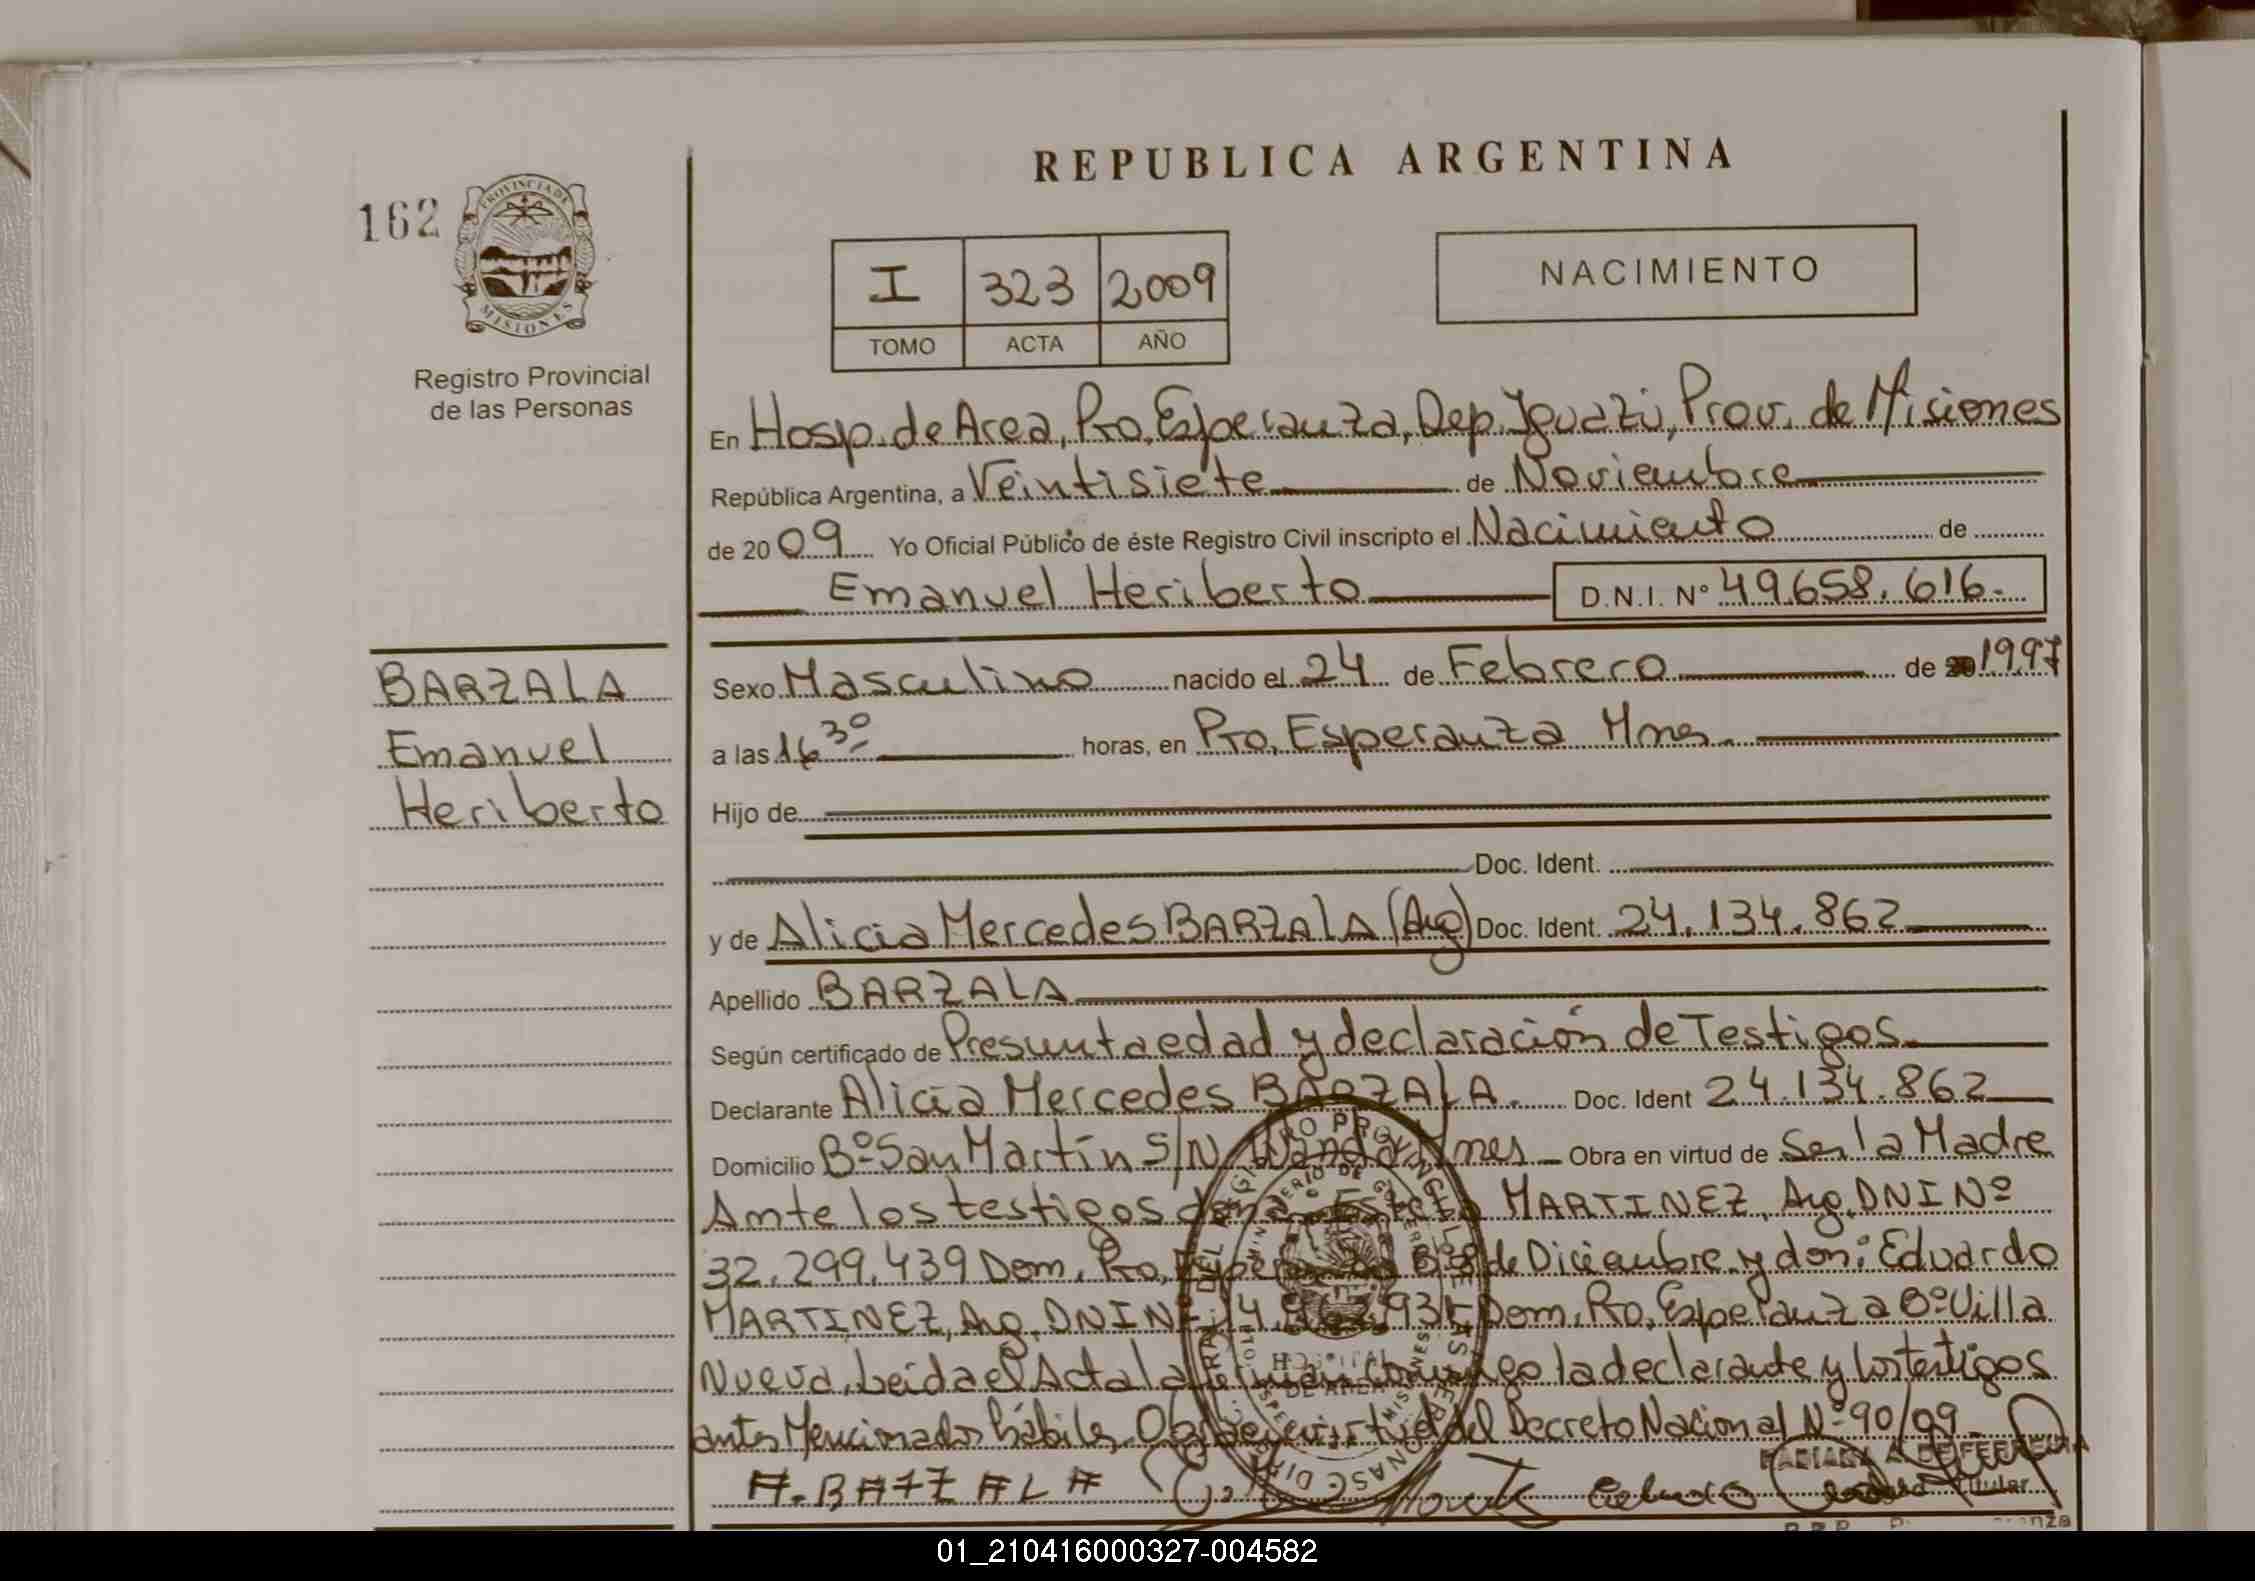 REPUBLICA ARGENTINA
162
PROVINCIA DE
MISIONES
Registro Provincial
de las Personas
I 323 2009
TOMO ACTA AÑO
NACIMIENTO
En Hosp. de Area, Pto. Esperanza, Dep. Iguazú, Prov. de Misiones
República Argentina, a Veintisiete de Noviembre
de 20 09 Yo Oficial Público de éste Registro Civil inscripto el Nacimiento de
Emanuel Heriberto D.N.I. Nº 49.658.616.
BARZALA
Emanuel
Heriberto
Sexo Masculino nacido el 24 de Febrero de 1997
a las 16 30 horas, en Pto. Esperanza Mnes.
Hijo de
Doc. Ident.
y de Alicia Mercedes BARZALA (Arg) Doc. Ident. 24.134.862
Apellido BARZALA
Según certificado de Presunta edad y declaración de Testigos.
Declarante Alicia Mercedes BARZALA. Doc. Ident 24.134.862
Domicilio Bº San Martín S/N Wanda Mnes Obra en virtud de Ser la Madre
Ante los testigos doña MARTINEZ, Arg. DNI Nº
32.299.439 Dom. Pto. Esperanza Bº 8 de Diciembre y don: Eduardo
MARTINEZ, Arg. DNI Nº Dom. Pto. Esperanza Bº Villa
Nueva. Leída el Acta la firman conmigo la declarante y los testigos
antes Mencionados hábiles. Obra en virtud del Decreto Nacional Nº 90/09
A. BAZZALA
Titular
01_210416000327-004582